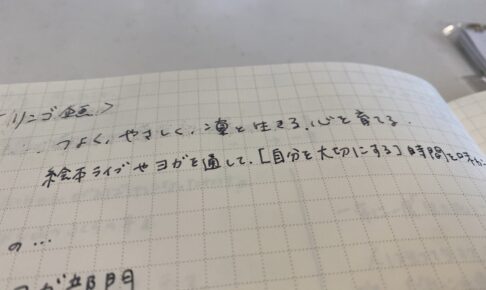 リンゴ企画>
つよく、やさしく、凛と生きる、心を育てる.
絵本ライブやヨガを通して、[自分を大切にする]時間と
の…
ヨガ部門